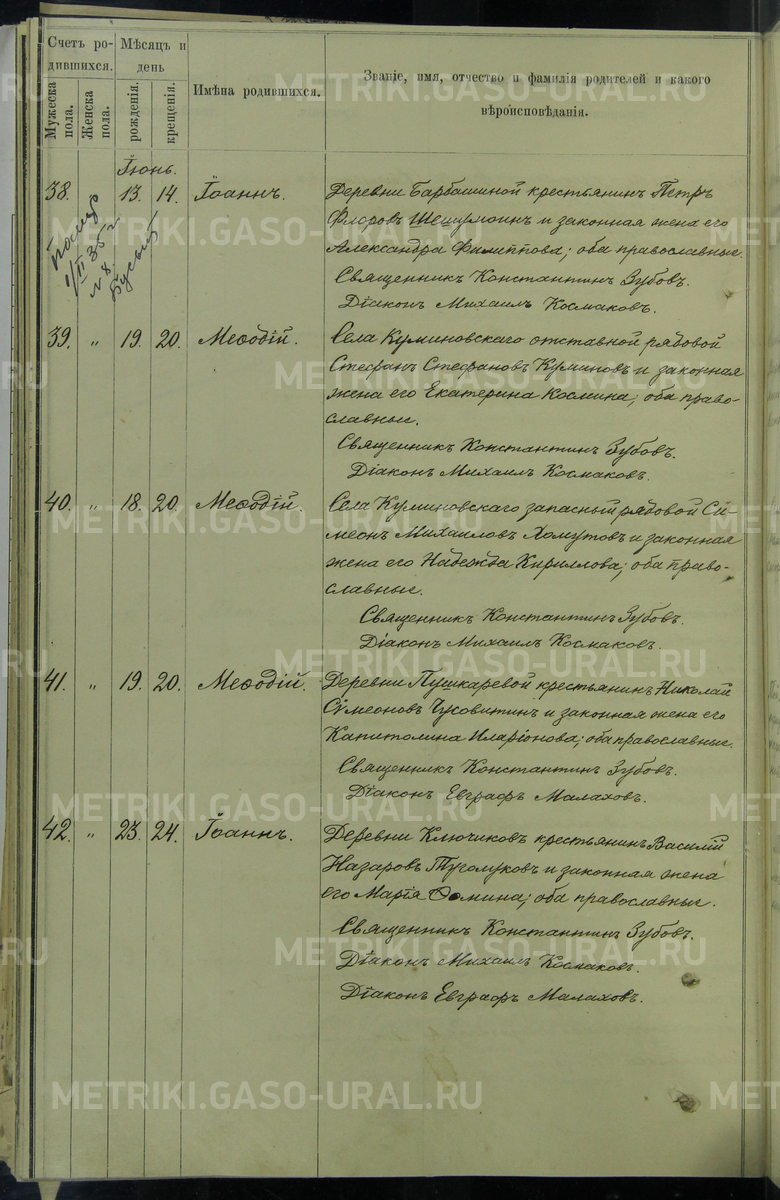 Счетъ ро-
дившихся.
Мѣсяцъ и
день
Мужеска
пола.
Женска
пола.
рожденія.
крещенія.
Имѣна родившихся.
Званіе, имя, отчество и фамилія родителей и какого
вѣроисповѣданія.
Іюнь.
38. 13. 14. Іоаннъ. Деревни Барбашиной крестьянинъ Петръ
Флоровъ и законная жена его
Александра Филиппова; оба православные.
Священникъ Константинъ Зубовъ.
Діаконъ Михаилъ Космаковъ.
1/II 35 г
№ 8.
39. " 19. 20. Меѳодій. Села Куминовскаго отставной рядовой
Стефанъ Стефановъ Куминовъ и законная
жена его Екатерина Космина; оба право-
славные.
Священникъ Константинъ Зубовъ.
Діаконъ Михаилъ Космаковъ.
40. " 18. 20. Меѳодій. Села Куминовскаго запасный рядовой Си-
меонъ Михаиловъ Хомутовъ и законная
жена его Надежда Кириллова; оба право-
славные.
Священникъ Константинъ Зубовъ.
Діаконъ Михаилъ Космаковъ.
41. " 19. 20. Меѳодій. Деревни Пушкаревой крестьянинъ Николай
Сѵмеоновъ Чусовитинъ и законная жена его
Капитолина Иларіонова; оба православные.
Священникъ Константинъ Зубовъ.
Діаконъ Евграфъ Малаховъ.
42. " 23. 24. Іоаннъ. Деревни Ключиковъ крестьянинъ Василій
Назаровъ Туголуковъ и законная жена
его Марія Фомина; оба православные.
Священникъ Константинъ Зубовъ.
Діаконъ Михаилъ Космаковъ.
Діаконъ Евграфъ Малаховъ.
METRIKI.GASO-URAL.RU